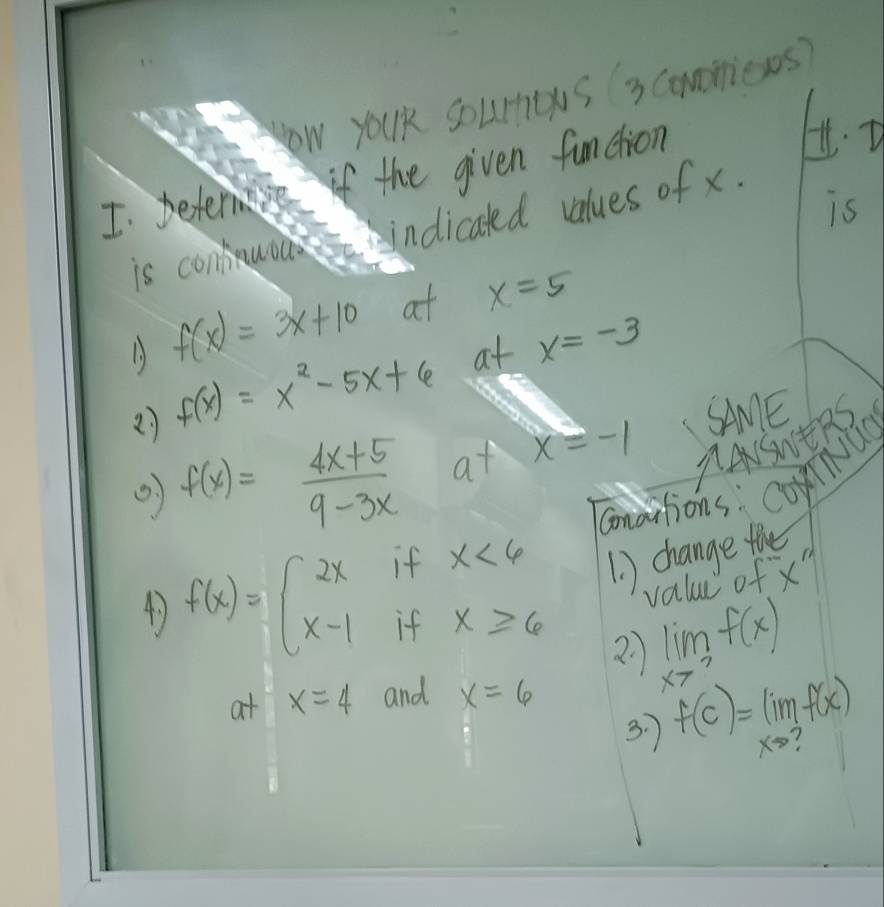 YOUR SOLUTIONS (3 CONDITIONS)
I. Determine if the given function
is continuous at indicated values of x.
1.) f(x) = 3x+10 at x = 5
2.) f(x) = x² - 5x + 6 at x = -3
3.) f(x) = (4x+5)/(9-3x) at x = -1
4.) f(x) = { 2x if x < 6
x-1 if x ≥ 6
at x = 4 and x = 6
SAME
ANSWERS
CONTINUOUS
Conditions:
1.) change the
value of "x"
2.) lim f(x)
x→?
3.) f(c) = lim f(x)
x→?
II. D
is